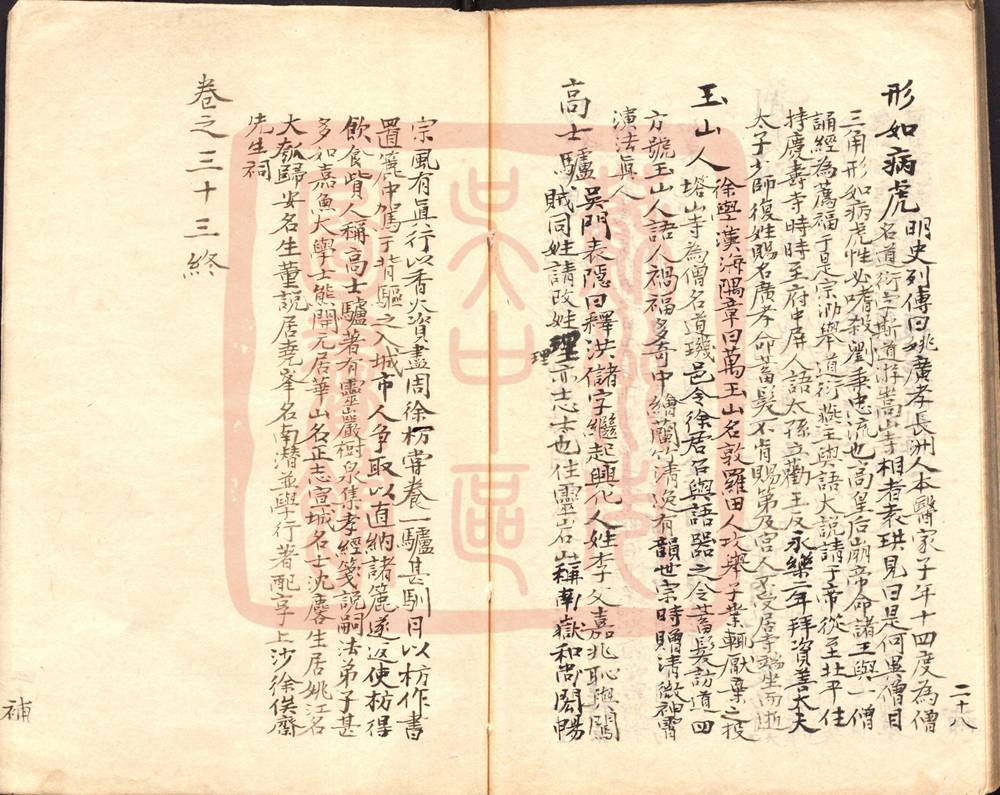 形如病虎 明史列傳曰姚廣孝長洲人本醫家子年十四度為僧
名道衍之嵩山寺相者袁珙見曰是何異僧目
三角形如病虎性必嗜殺劉秉忠流也高皇后崩帝命諸王與一僧
誦經為薦福于是宗泐舉道衍燕王與語大說請于帝從至北平住
持慶壽寺時時至府中屏人語太孫立勸王反永樂二年拜資善大夫
太子少師復姓賜名廣孝命蓄髮不肯賜第及宮人不受居寺端坐而逝
玉山人 徐學漢海隅章曰萬玉山名敦羅田人攻舉子業輒厭棄之投
塔山寺為僧名道璣邑令徐居石與語器之令蓄髮訪道四
方號玉山人語人禍福多奇中繪蘭竹清逸有韻世宗時贈清微神霄
演法眞人
高士驢 吳門表隱曰釋洪儲字繼起興化人姓李父嘉兆恥與闖
賊同姓請改姓理亦志士也住靈岩山稱南嶽和尚闡暢
理
宗風有眞行以香火資盡周徐枋嘗養一驢甚馴月以枋作書
置簏中駕于背驅之入城市人爭取以直納諸簏遂返使枋得
飲食貲人稱高士驢著有靈巖樹泉集孝經箋說嗣法弟子甚
多如嘉魚大學士熊開元居華山名正志宣城名士沈麐生居姚江名
大瓠歸安名生董說居堯峯名南潛並學行著配享上沙徐俟齋
先生祠
卷之三十三終
二十八
補